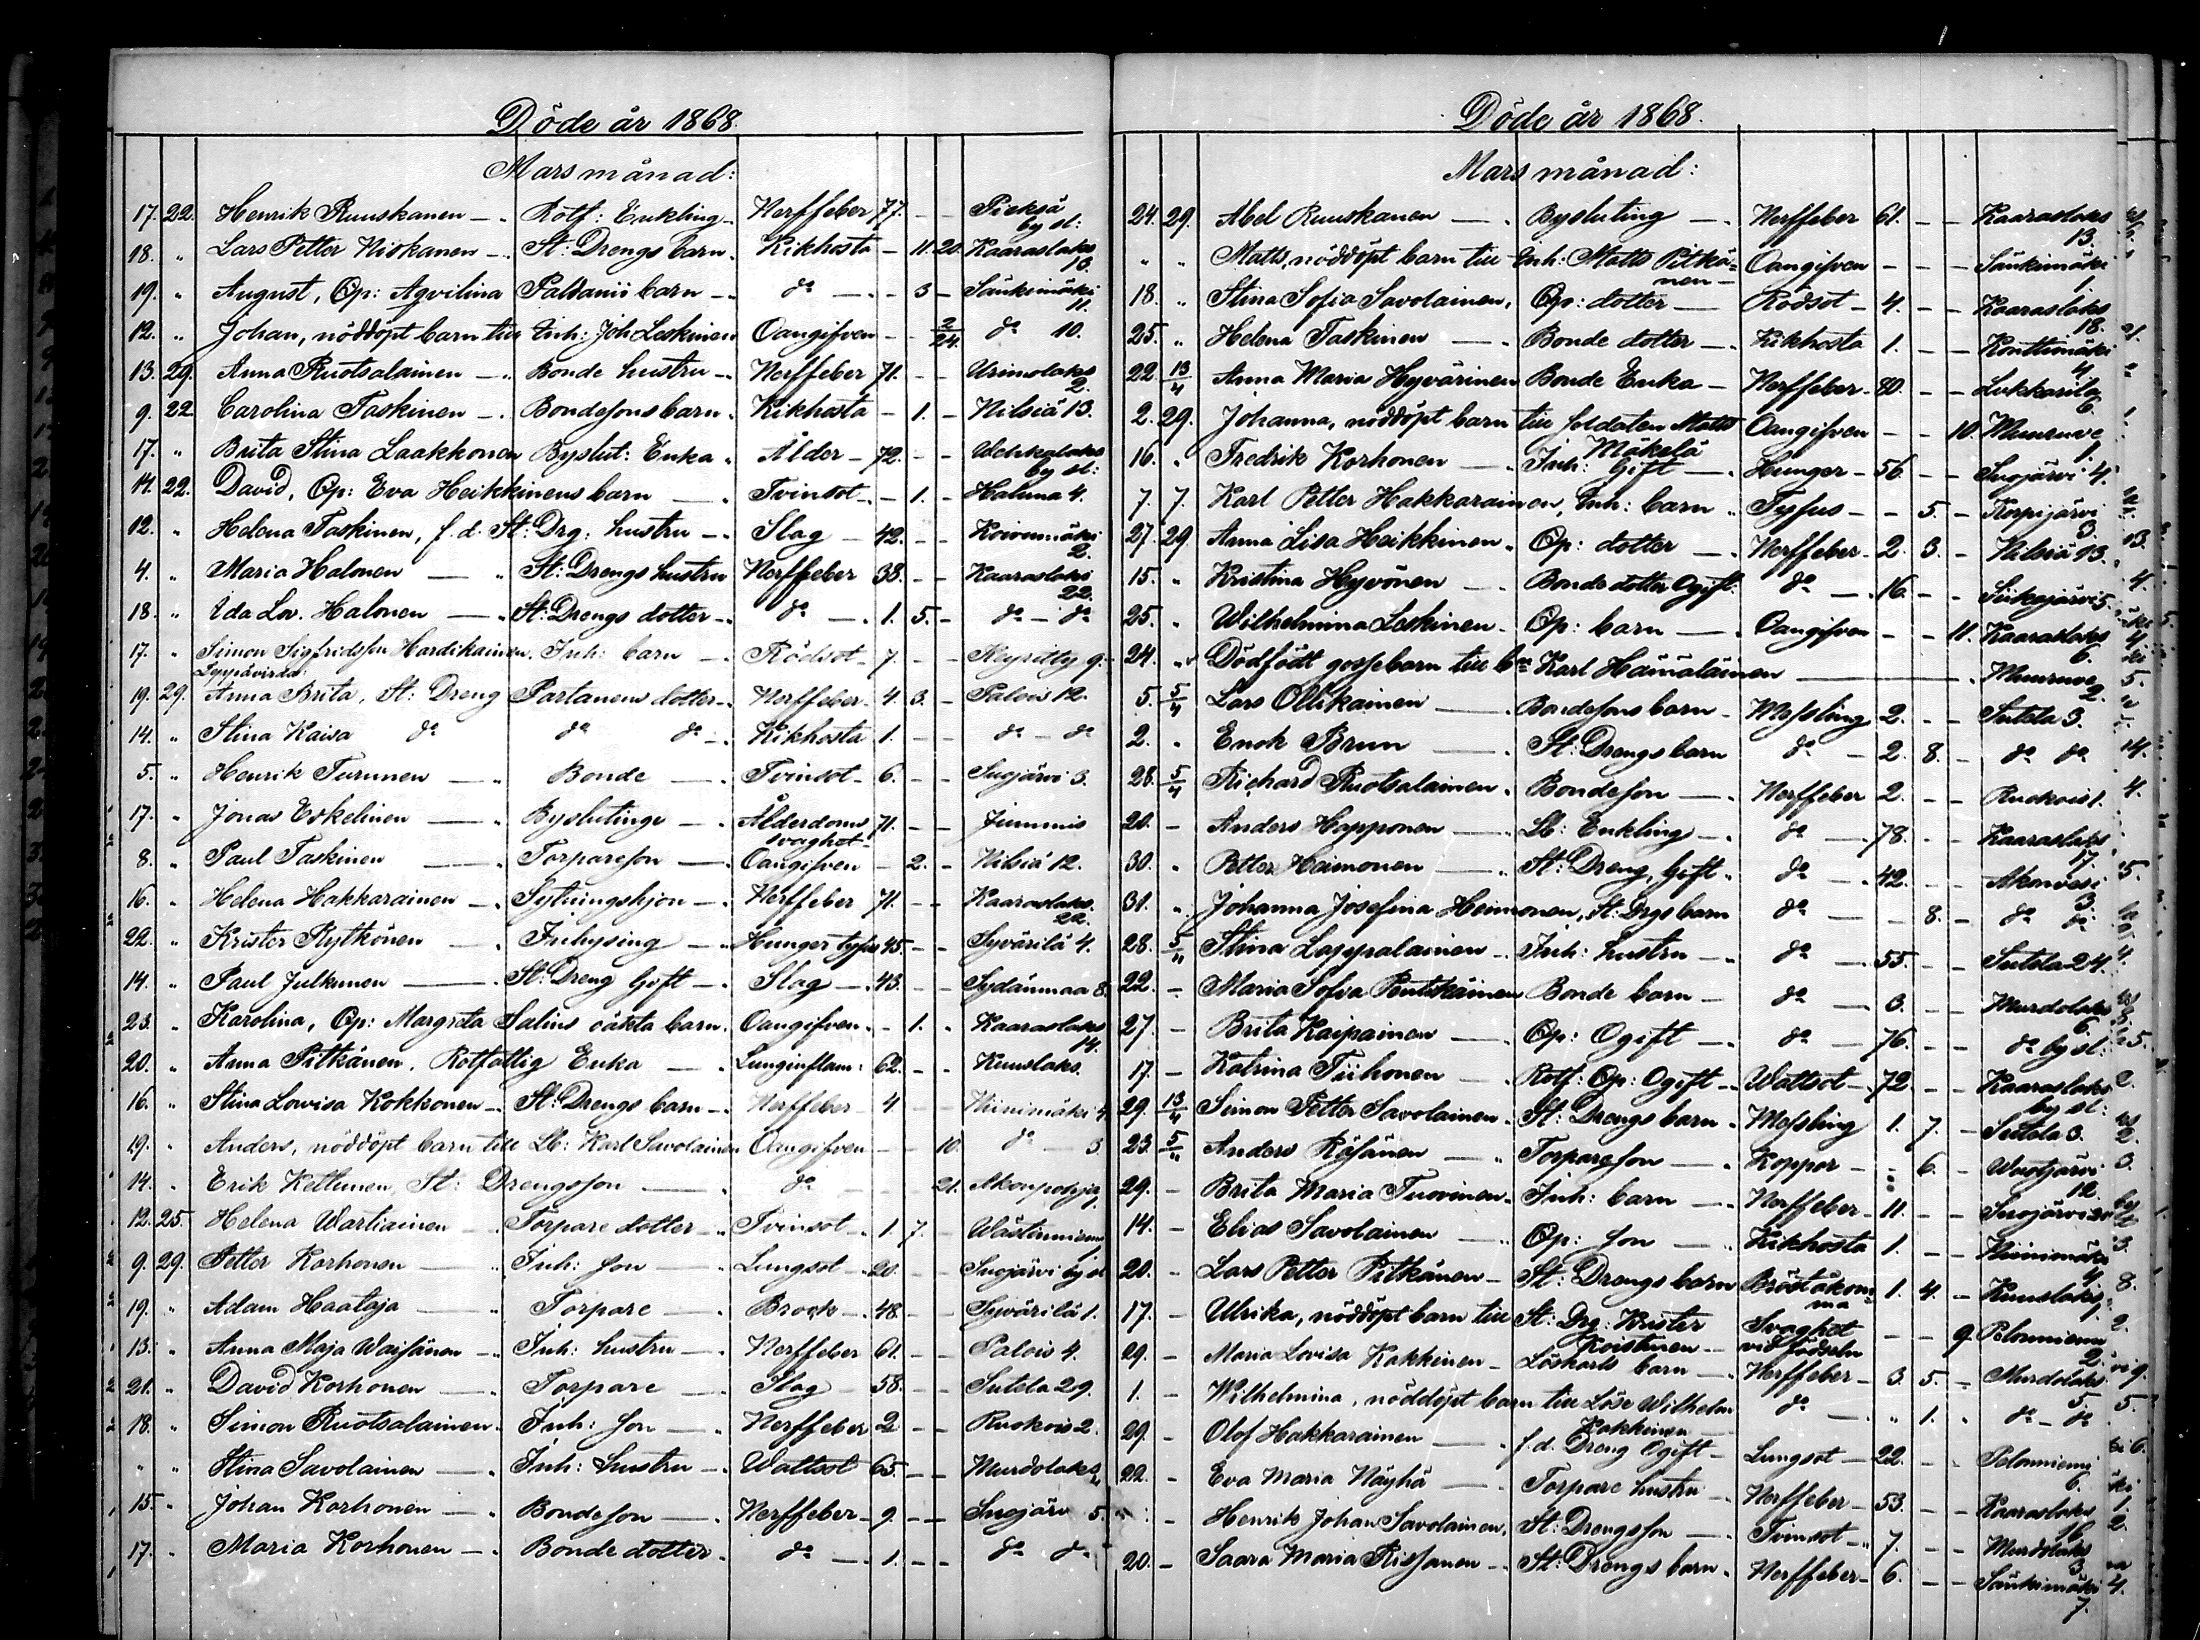 Döde år 1868.
Mars månad:
17. 22. Henrik Ruuskanen — Rotf: Enkling — Nerffeber 77. — — Pieksä by sl:
18. " Lars Petter Niskanen — St: Drengs barn. Kikhosta — 11. 20. Kaaraslaks 13.
19. " August, Qp: Agvilina Paldanii barn — do — — 3 — Sänkimäki 11.
12. " Johan, nöddöpt barn till Inh: Joh Leskinen Oangifven — — 2/24. do 10.
13. 29. Anna Ruotsalainen — Bonde hustru — Nerffeber 71. — — Urimolaks 2.
9. 22 Carolina Taskinen — Bondesons barn. Kikhosta — 1. — Nilsiä 13.
17. " Brita Stina Laakkonen Byslut: Enka " Ålder — 72. — — by sl:
11. 22. David, Qp: Eva Heikkinens barn — Tvinsot — — 1. — Haluna 4.
12. " Helena Taskinen, f. d. St: Drg: hustru — Slag — 42. — — Koivumäki 2.
4. " Maria Halonen — St: Drengs hustru Nerffeber 38. — — Kaaraslaks 22.
18. " Ida Lov. Halonen — St: Drengs dotter — do — 1. 5. — do — do
17. " Simon Sigfridsson Hardikainen, Inh: barn — Rödsot — 7. — — Reyritty 9.
Leppävirda:
19. 29. Anna Brita, St: Dreng Partanens dotter — Nerffeber — 4. 3. — Palois 12.
14. " Stina Kaisa do do do — Kikhosta 1. — — do — do
5. " Henrik Turunen — Bonde — Tvinsot — 6. — — Suojärvi 3.
17. " Jonas Eskelinen — Byslutinge — Ålderdoms svaghet — 71. — — Jummis
8. " Paul Taskinen — Torpareson — Oangifven — 2. — Nilsiä 12.
16. " Helena Hakkarainen — Sytningshjon — Nerffeber 71. — — Kaaraslaks. 22.
22. " Krister Rytkönen — Inhysing — Hunger tyfus 45. — — Syvärilä 4.
14. " Paul Julkunen — St: Dreng Gift — Slag — 43. — — Sydänmaa 8.
23. " Karolina, Qp: Margreta Salins oäkta barn. Oangifven. — 1. " Kaaraslaks 14.
20. " Anna Pitkänen. Rotfattig Enka — Lunginflam: 62. — — Kuuslaks.
16. " Stina Lowisa Kokkonen — St: Drengs barn — Nerffeber 4 — — Kinimäki 4
19. " Anders, nöddöpt barn till Lb: Karl Savolainen Oangifven — — 10. do — 3
14. " Erik Kettunen, St: Drengsson — do — — 21. Akonpohja
12. 25. Helena Wartiainen — Torpare dotter — Tvinsot — 1. 7. — Wästinniemi 1
9. 29. Petter Korhonen — Inh: son — Lungsot — 20. — — Suojärvi by sl
19. " Adam Haataja — Torpare — Brock — 48. — — Syvärilä 1.
13. " Anna Maja Waisänen — Inh: hustru — Nerffeber 61. — — Palois 4.
21. " David Korhonen — Torpare — Slag — 58. — — Sutela 29.
18. " Simon Ruotsalainen. Inh: son — Nerffeber 2 — — Ruokois 2.
" " Stina Savolainen — Inh: hustru — Wattsot 65. — — Murdolaks
15. " Johan Korhonen — Bondeson — Nerffeber — 9. — — Suojärvi 5.
17. " Maria Korhonen — Bonde dotter. do — 1. — — do do
Döde år 1868.
Mars månad:
24. 29. Abel Ruuskanen — Bysluting — Nerffeber 61. — — Kaaraslaks 13.
" " Matts, nöddöpt barn till Inh: Matts Pitkänen — Oangifven — — — Sänkimäki 1.
18. " Stina Sofia Savolainen, Qp: dotter — Rödsot — 4. — — Kaaraslaks 18.
25. " Helena Taskinen — Bonde dotter — Kikhosta 1. — — Konttimäki 4.
22 13/4 Anna Maria Hyvärinen Bonde Enka — Nerffeber — 80. — — Lukkarila 6.
2. 29. Johanna, nöddöpt barn till soldaten Matts Mäkelä Oangifven — — 10. Muuruve 1.
16. " Fredrik Korhonen — Inh: Gift — Hunger — 56 — — Suojärvi 4.
7. 7. Karl Petter Hakkarainen, Inh: barn " Tyfus — — 5. — Korpijärvi 3.
27. 29. Anna Lisa Heikkinen. Qp: dotter — Nerffeber — 2. 3. — Nilsiä 13.
15. " Kristina Hyvönen — Bonde dotter Ogift: do — 16. — — Siikajärvi 5.
25. " Wilhelmina Leskinen — Qp: barn — Oangifven — — 11. Kaaraslaks 6.
24. " Dödfödt gossebarn till Karl Hämäläinen — Muuruve 2.
5. 5/4 Lars Ollikainen — Bondesons barn — Messling 2. — — Sutela 3.
2. " Enok Brun — St: Drengs barn do — 2. 8. — do do
28. 5/4 Richard Ruotsalainen. Bondeson — Nerffeber 2. — — Ruokois 1.
20. — Anders Happonen — Lb: Enkling — do — 78. — — Kaaraslaks 17.
30. " Petter Heimonen — St: Dreng, Gift " do — 42. — — Akonvesi 3.
31. " Johanna Josefina Heimonen, St: Drgs barn do — — 8. — do do
28. 5/" Stina Lappalainen — Inh: hustru — do — 55. — — Sutela 24.
22. — Maria Sofia Pentikäinen Bonde barn — do — 3. — — Murdolaks 6.
27. — Brita Kaipainen — Qp: Ogift — do — 76. — — do by sl:
17. — Katrina Tiihonen — Rotf: Qp: Ogift — Wattsot — 72. — — Kaaraslaks by sl:
29. 13/4 Simon Petter Savolainen — St: Drengs barn. Messling 1. 7. — Sutela 3.
23. 5/" Anders Räsänen — Torpareson — Koppor — — 6. — Wuotjärvi 12.
29. — Brita Maria Tuovinen — Inh: barn — Nerffeber — 11. — — Suojärvi
14. — Elias Savolainen — Qp: son — Kikhosta 1. — — Kinimäki 4
20. — Lars Petter Pitkänen — St: Drengs barn Bröståkomma 1. 4. — Kuuslaks
17. — Ulrika, nöddöpt barn till St: Drg: Krister Koistinen — Svaghet vid födseln — — 9. Pelonniemi 2.
29. — Maria Lovisa Kokkinen — Löskarls barn — Nerffeber — 3. 5. — Murdolaks 5.
1. — Wilhelmina, nöddöpt barn till Löse Wilhelm Kokkinen — do — " 1. " do — do
29. — Olof Hakkarainen — f. d. Dreng Ogift — Lungsot — 22. — — Pelonniemi 6.
22. — Eva Maria Näyhä — Torpare hustru — Nerffeber — 53. — — Kaaraslaks 16.
" — Henrik Johan Savolainen, St: Drengsson — Tvinsot — 7. — — Murdolaks 3.
20. — Saara Maria Rissanen — St: Drengs barn. Nerffeber — 6. — — Sänkimäki 7.